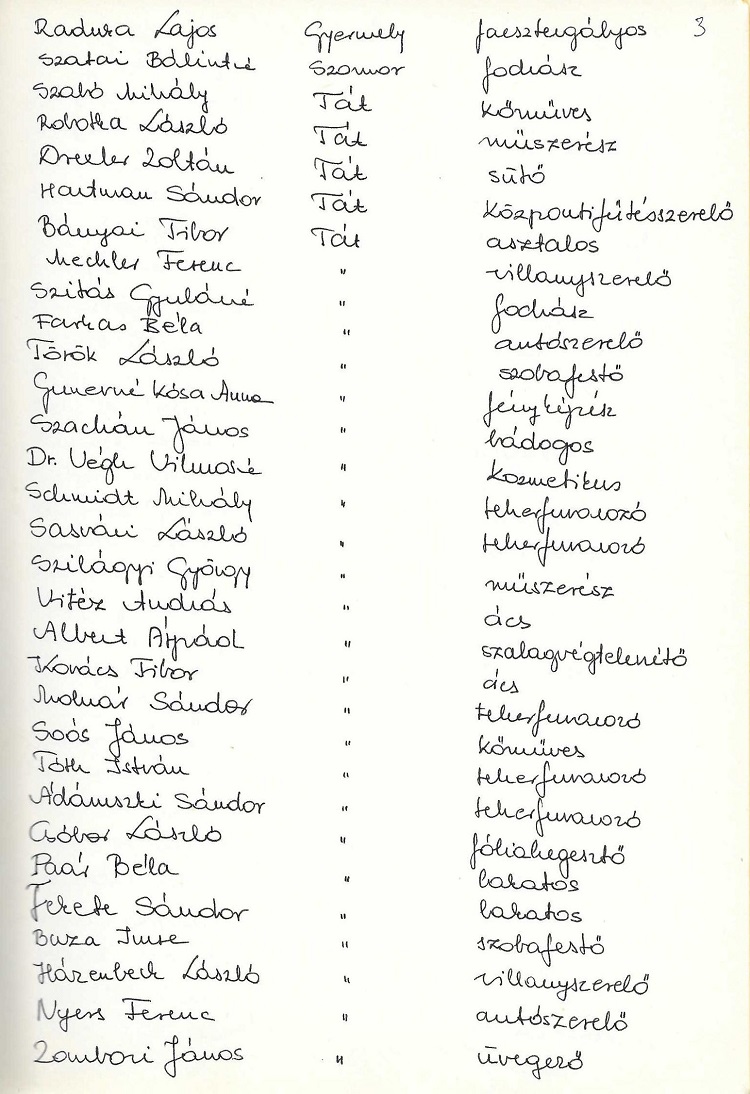 Radura Lajos Gyermely faesztergályos 3
Szatai Bálintné Szomor fodrász
Szabó Mihály Tát kőműves
Robotka László Tát műszerész
Drexler Zoltán Tát sütő
Hartman Sándor Tát központifűtésszerelő
Bányai Tibor Tát asztalos
Mechler Ferenc " villanyszerelő
Szitás Gyuláné " fodrász
Farkas Béla " autószerelő
Török László " szobafestő
Gunerné Kósa Anna " fényképész
Szachán János " bádogos
Dr. Végh Vilmosné " kozmetikus
Schmidt Mihály " teherfuvarozó
Sasvári László " teherfuvarozó
Szilágyi György " műszerész
Vitéz András " ács
Albert Árpád " szalagvégtelenítő
Kovács Tibor " ács
Molnár Sándor " teherfuvarozó
Soós János " kőműves
Tóth István " teherfuvarozó
Ádámszki Sándor " teherfuvarozó
Gábor László " fóliahegesztő
Paár Béla " lakatos
Fekete Sándor " lakatos
Buza Imre " szobafestő
Házenbeck László " villanyszerelő
Nyers Ferenc " autószerelő
Zombori János " üvegező